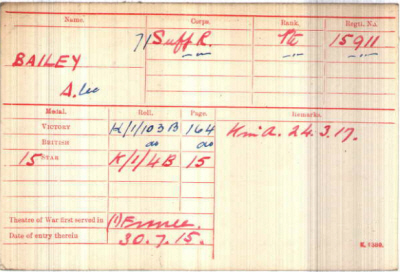 Name. Corps. Rank. Regtl. No.
BAILEY 7/Suff R. Pte 15911
A. Leo
Medal. Roll. Page. Remarks.
VICTORY K/1/103B 164 K in A. 24.3.17.
BRITISH do do
15 STAR K/1/4B 15
Theatre of War first served in (1) France.
Date of entry therein 30.7.15.
K. 1380.